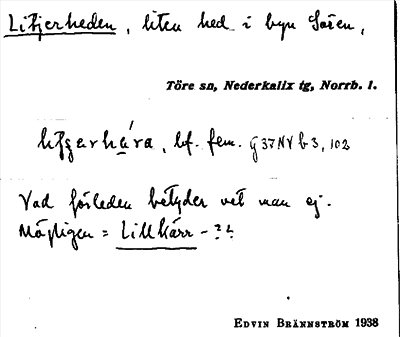 Litjerheden, liten hed i byn Säien,
Töre sn, Nederkalix tg, Norrb. l.
bf. fem. G 37 NV b 3, 102
Vad förleden betyder vet man ej.
Möjligen = Lillkärr - ??
EDVIN BRÄNNSTRÖM 1938